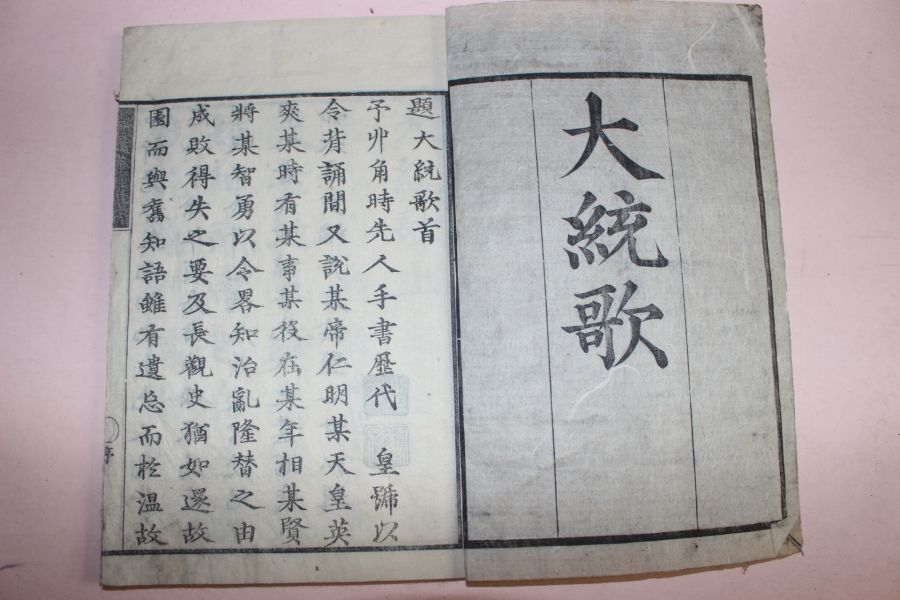 大統歌
題大統歌首
予丱角時先人手書歴代 皇號以
令背誦間又説某帝仁明某天皇英
爽某時有某事某役在某年相某賢
將某智勇以令畧知治亂隆替之由
成敗得失之要及長觀史猶如還故
園而與舊知語雖有遺忘而於温故
序